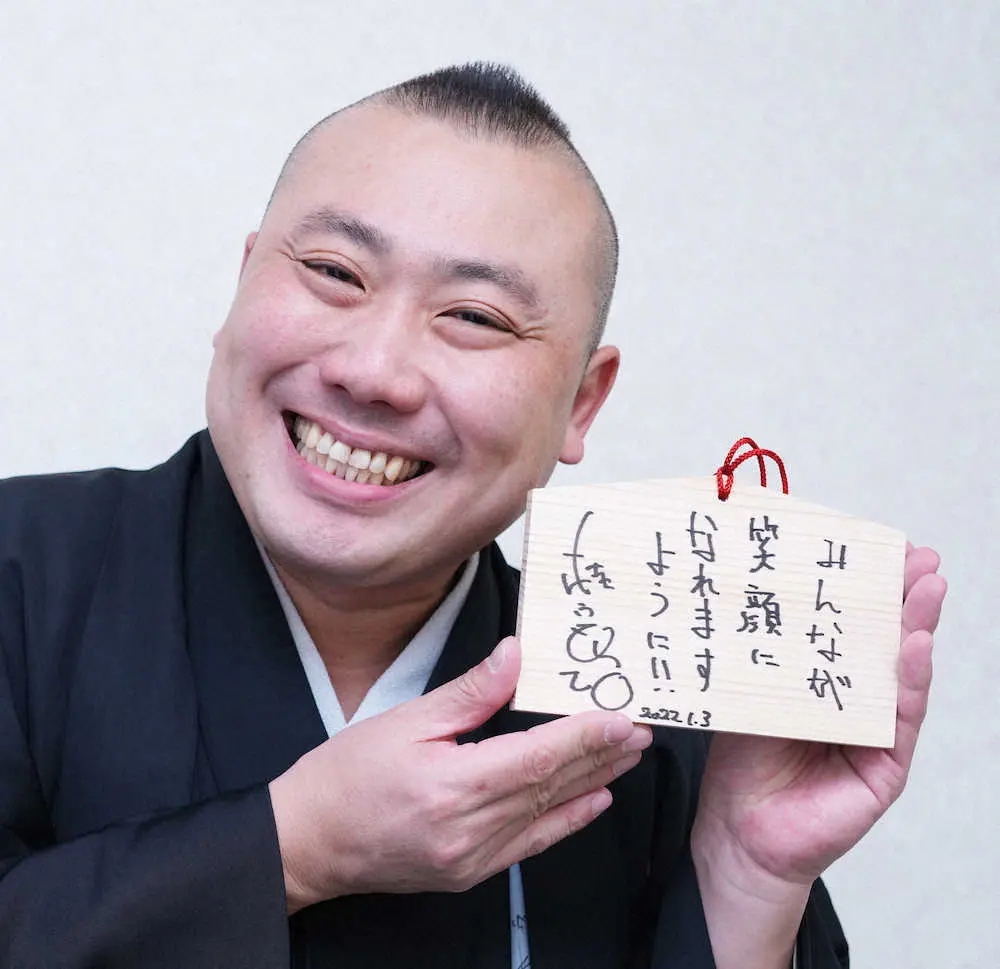 みんなが
笑顔に
なれます
ように!!
2022.1.3